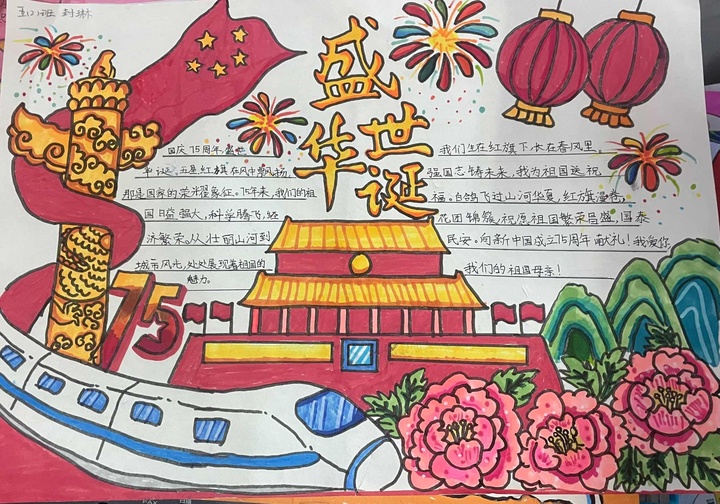 五(2)班 封琳
盛世
华诞
国庆75周年,盛世
华诞。五星红旗在风中飘扬,
那是国家的荣耀象征。75年来,我们的祖
国日益强大,科学腾飞,经
济繁荣。从壮丽山河到
城市风光,处处展现着祖国的
魅力。
我们生在红旗下,长在春风里,
强国志铸未来,我为祖国送祝
福。白鸽飞过山河华夏,红旗漫卷,
花团锦簇,祝愿祖国繁荣昌盛,国泰
民安。向新中国成立75周年献礼!我爱您
我们的祖国母亲!
75